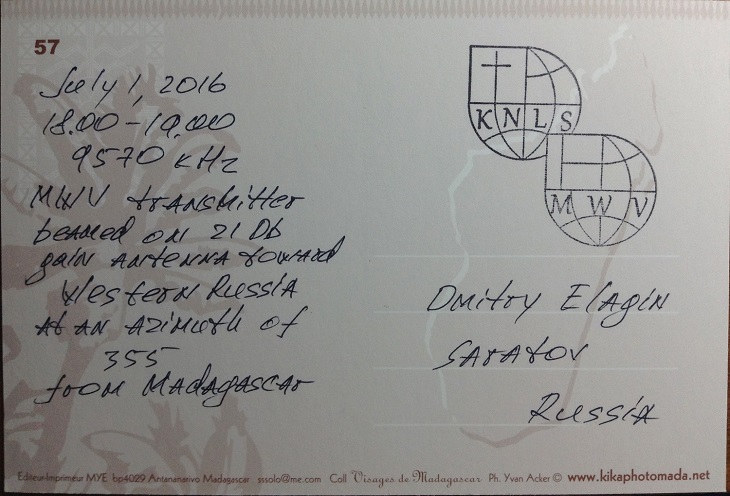 57
July 1, 2016
18.00-19.00
9570 kHz
MWV transmitter
beamed on 21 Db
gain antenna toward
Western Russia
at an azimuth of
355
from Madagascar
KNLS
MWV
Dmitry Elagin
Saratov
Russia
Editeur-Imprimeur MYE bp4029 Antananarivo Madagascar sssolo@me.com Coll Visages de Madagascar Ph. Yvan Acker © www.kikaphotomada.net